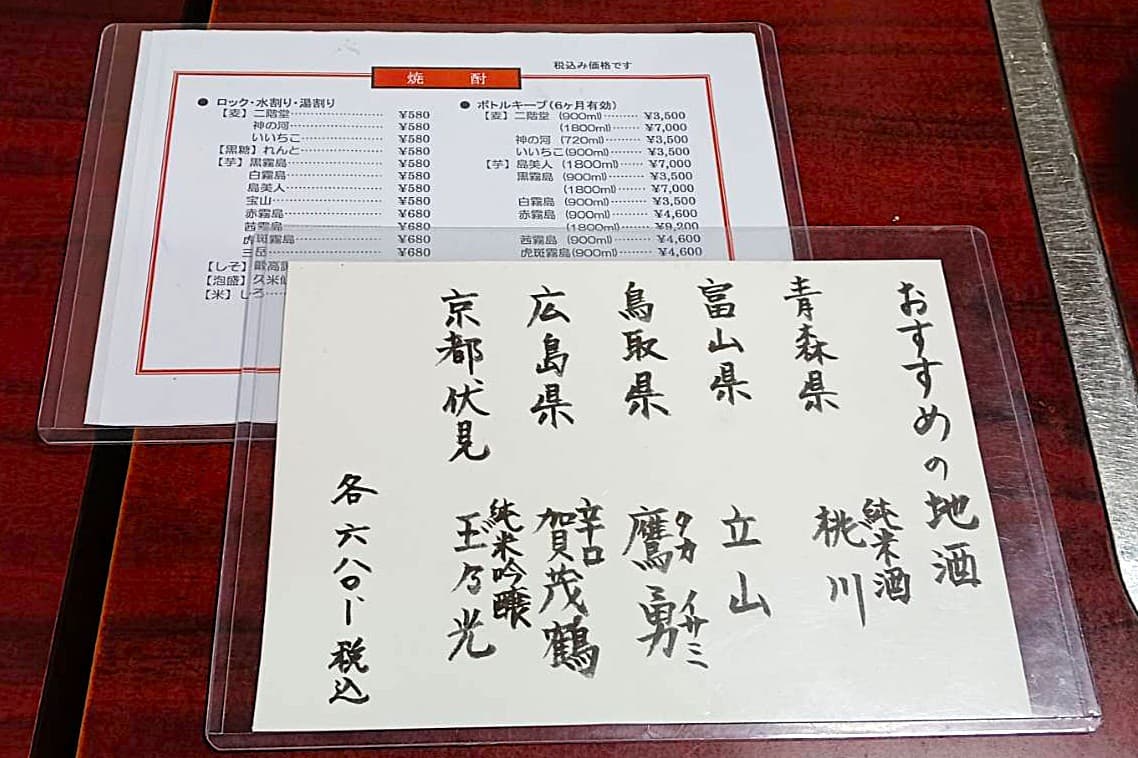 税込み価格です
焼 酎
● ロック・水割り・湯割り
【麦】二階堂 ¥580
神の河 ¥580
いいちこ ¥580
【黒糖】れんと ¥580
【芋】黒霧島 ¥580
白霧島 ¥580
島美人 ¥580
宝山 ¥580
赤霧島 ¥680
茜霧島 ¥680
虎斑霧島 ¥680
三岳 ¥680
【しそ】
【泡盛】久米
【米】しろ
● ボトルキープ(6ヶ月有効)
【麦】二階堂 (900ml) ¥3,500
(1800ml) ¥7,000
神の河 (720ml) ¥3,500
いいちこ(900ml) ¥3,500
【芋】島美人 (1800ml) ¥7,000
黒霧島 (900ml) ¥3,500
(1800ml) ¥7,000
白霧島 (900ml) ¥3,500
赤霧島 (900ml) ¥4,600
(1800ml) ¥9,200
茜霧島 (900ml) ¥4,600
虎斑霧島(900ml) ¥4,600
おすすめの地酒
青森県 純米酒 桃川
富山県 立山
鳥取県 鷹勇 タカ イサミ
広島県 辛口 賀茂鶴
京都伏見 純米吟醸 玉乃光
各六八〇、ー税込